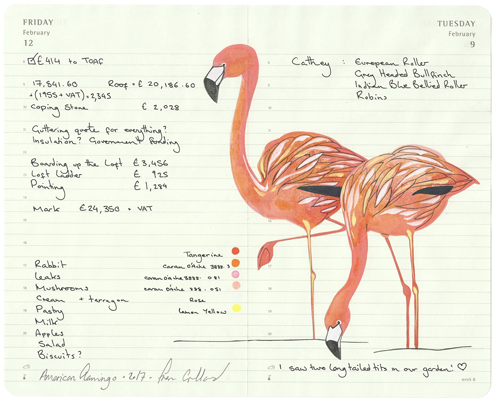 FRIDAY
February
12
£414 to TOAF
17,841.60 Roof = £20,186.60
+(1955+VAT)=2,345
Coping Stone £2,028
Guttering quote for everything?
Insulation? Government Funding
Boarding up the Loft £3,456
Loft Ladder £ 925
Pointing £1,284
Mark £24,350 + VAT
Tangerine
Rabbit caran D'Ache
Leaks caran D'Ache 081
Mushrooms caran D'Ache 051
Cream + tarragon Rose
Pastry Lemon Yellow
Milk
Apples
Salad
Biscuits?
American Flamingo · 2017 ·
TUESDAY
February
9
Cathey : European Roller
Grey Headed Bullfinch
Indian Blue Bellied Roller
Robins
I saw two long tailed tits in our garden! ♡
week 6